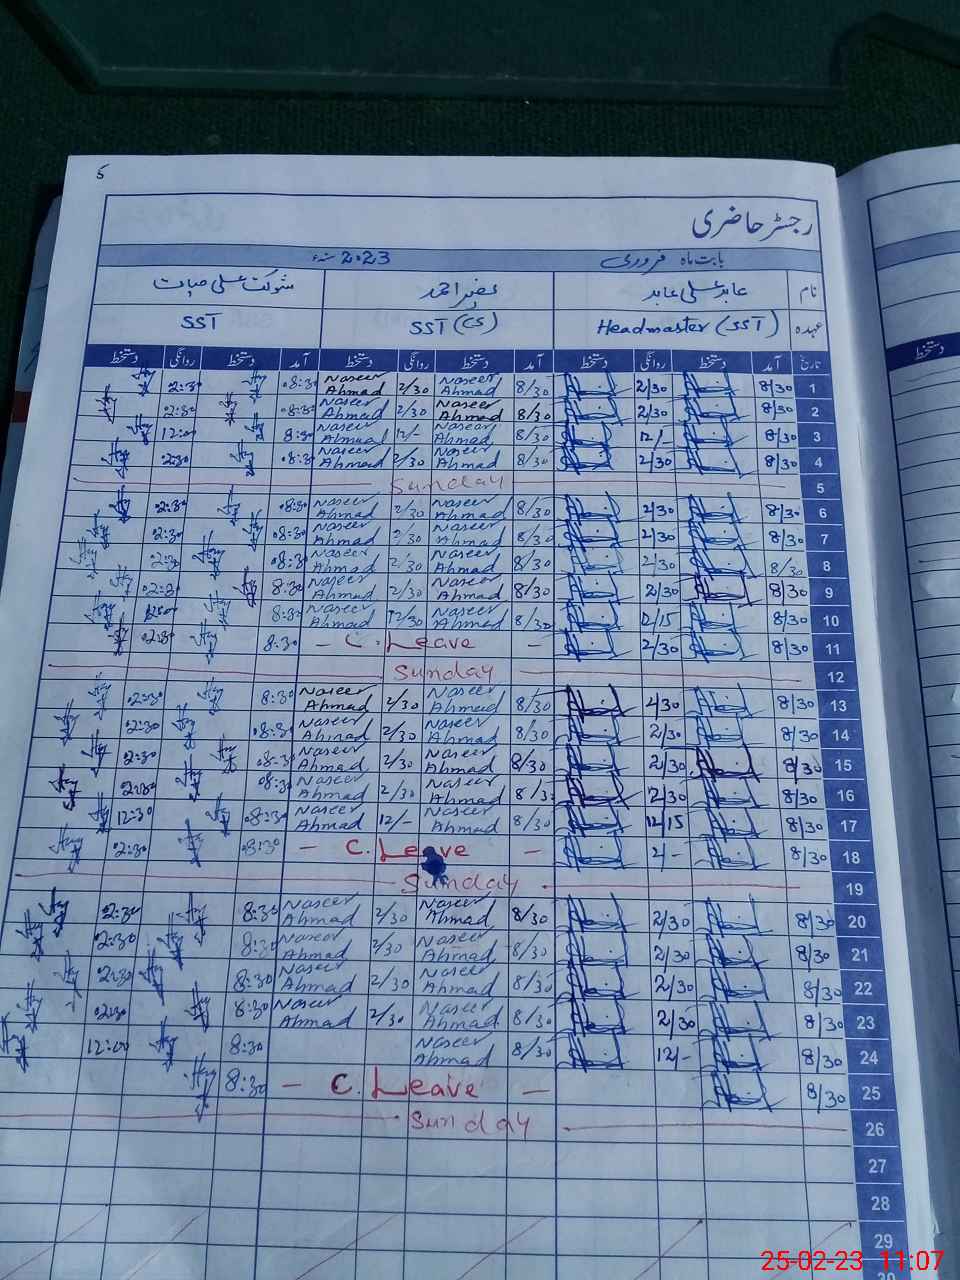 5
رجسٹر حاضری
بابت ماہ فروری 2023 سنہء
نام عابد علی عابد نصیر احمد شوکت علی حیات
عہدہ Headmaster (SST) SST (سی) SST
تاریخ آمد دستخط روانگی دستخط آمد دستخط روانگی دستخط آمد دستخط روانگی دستخط
1 8/30 2/30 8/30 Naseer Ahmad 2/30 Naseer Ahmad 8:30 2:30
2 8/30 2/30 8/30 Naseer Ahmad 2/30 Naseer Ahmad 8:30 2:30
3 8/30 12/- 8/30 Naseer Ahmad 12/- Naseer Ahmad 8:30 12:00
4 8/30 2/30 8/30 Naseer Ahmad 2/30 Naseer Ahmad 8:30 2:30
5 Sunday
6 8/30 2/30 8/30 Naseer Ahmad 2/30 Naseer Ahmad 8:30 2:30
7 8/30 2/30 8/30 Naseer Ahmad 2/30 Naseer Ahmad 8:30 2:30
8 8/30 2/30 8/30 Naseer Ahmad 2/30 Naseer Ahmad 8:30 2:30
9 8/30 2/30 8/30 Naseer Ahmad 2/30 Naseer Ahmad 8:30 2:30
10 8/30 12/15 8/30 Naseer Ahmad 12/30 Naseer Ahmad 8:30
11 8/30 2/30 - C. Leave - 8:30 2:30
12 Sunday
13 8/30 2/30 8/30 Naseer Ahmad 2/30 Naseer Ahmad 8:30 2:30
14 8/30 2/30 8/30 Naseer Ahmad 2/30 Naseer Ahmad 8:30 2:30
15 8/30 2/30 8/30 Naseer Ahmad 2/30 Naseer Ahmad 8:30 2:30
16 8/30 2/30 8/30 Naseer Ahmad 2/30 Naseer Ahmad 8:30 2:30
17 8/30 12/15 8/30 Naseer Ahmad 12/- Naseer Ahmad 8:30 12:30
18 8/30 2/- - C. Leave - 8:30 2:30
19 Sunday
20 8/30 2/30 8/30 Naseer Ahmad 2/30 Naseer Ahmad 8:30 2:30
21 8/30 2/30 8/30 Naseer Ahmad 2/30 Naseer Ahmad 8:30 2:30
22 8/30 2/30 8/30 Naseer Ahmad 2/30 Naseer Ahmad 8:30 2:30
23 8/30 2/30 8/30 Naseer Ahmad 2/30 Naseer Ahmad 8:30 2:30
24 8/30 12/- 8/30 Naseer Ahmad 8:30 12:00
25 8/30 - C. Leave - 8:30
26 Sunday
27
28
29
دستخط
25-02-23 11:07